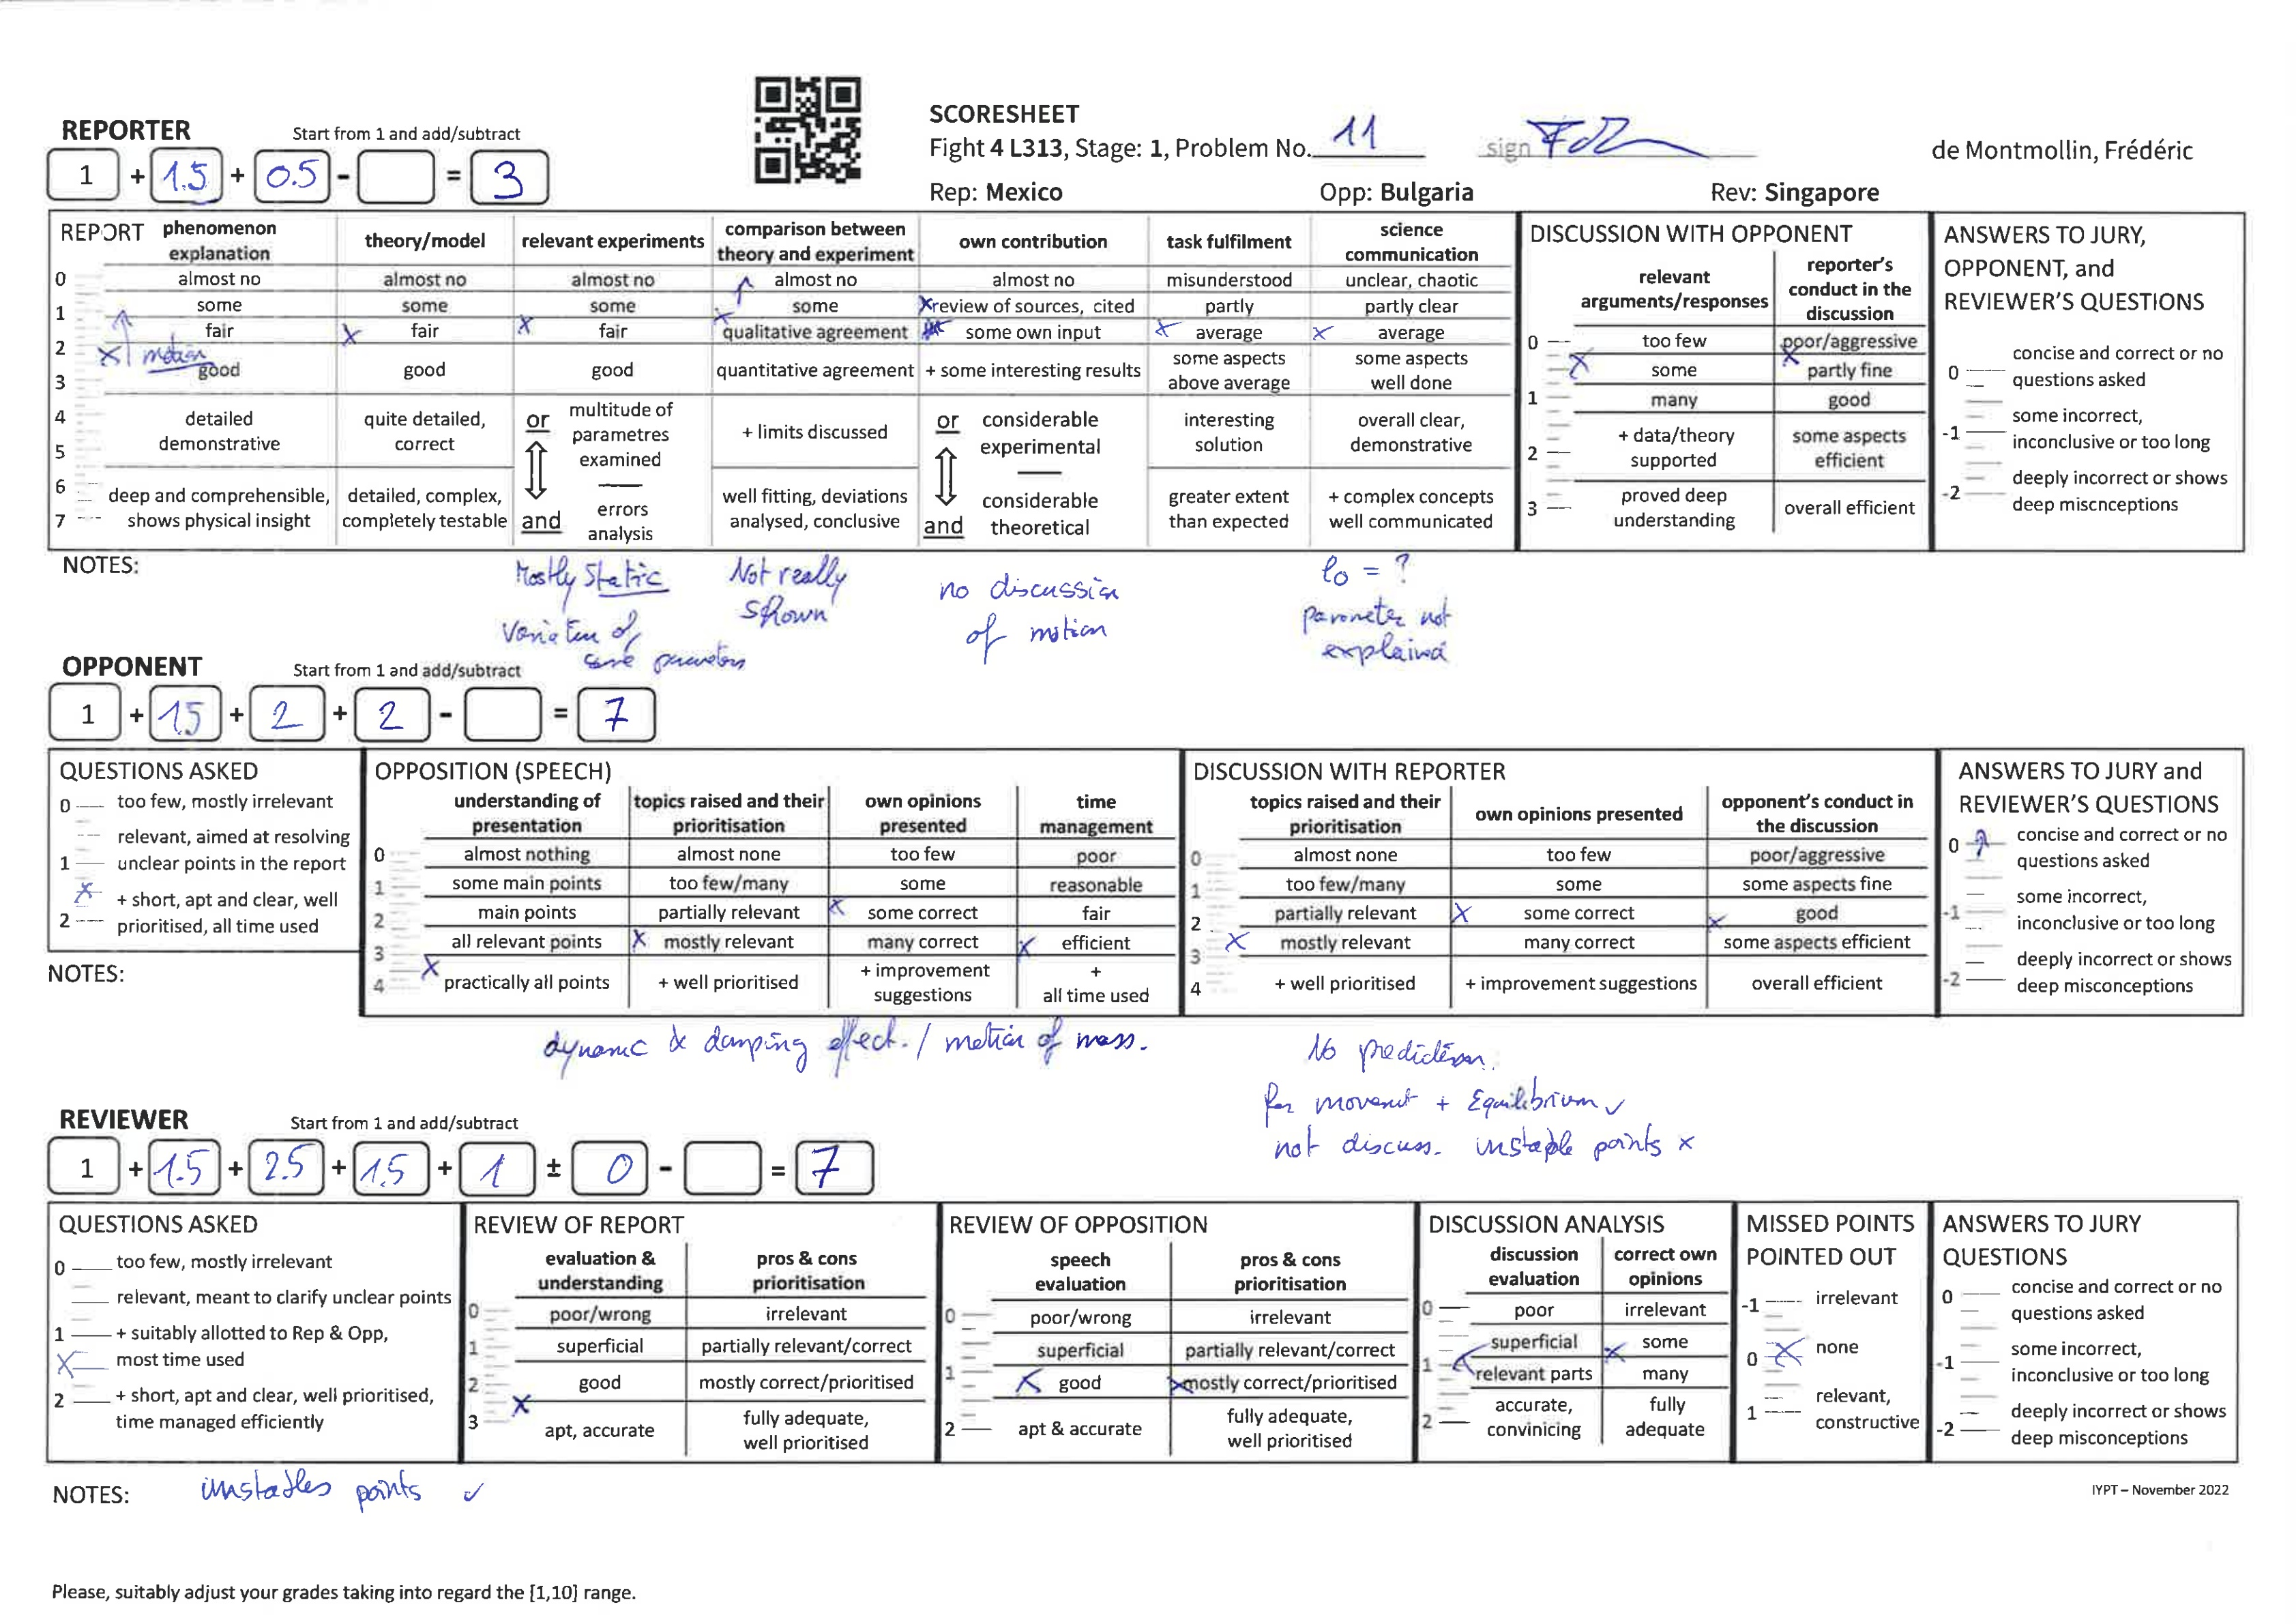 SCORESHEET
Fight 4 L313, Stage: 1, Problem No. 11
sign
de Montmollin, Frédéric
Rep: Mexico
Opp: Bulgaria
Rev: Singapore
REPORTER
Start from 1 and add/subtract
1 + 1.5 + 0.5 - = 3
REPORT
phenomenon explanation
theory/model
relevant experiments
comparison between theory and experiment
own contribution
task fulfilment
science communication
0
almost no
almost no
almost no
almost no
almost no
misunderstood
unclear, chaotic
1
some
some
some
some
review of sources, cited
partly
partly clear
2
fair
fair
fair
qualitative agreement
some own input
average
average
motion
3
good
good
good
quantitative agreement
+ some interesting results
some aspects above average
some aspects well done
4
5
detailed demonstrative
quite detailed, correct
or
multitude of parametres examined
+ limits discussed
or
considerable experimental
interesting solution
overall clear, demonstrative
6
7
deep and comprehensible, shows physical insight
detailed, complex, completely testable
and
errors analysis
well fitting, deviations analysed, conclusive
and
considerable theoretical
greater extent than expected
+ complex concepts well communicated
DISCUSSION WITH OPPONENT
relevant arguments/responses
reporter's conduct in the discussion
0
too few
poor/aggressive
some
partly fine
1
many
good
2
+ data/theory supported
some aspects efficient
3
proved deep understanding
overall efficient
ANSWERS TO JURY, OPPONENT, and REVIEWER'S QUESTIONS
0
concise and correct or no questions asked
-1
some incorrect, inconclusive or too long
-2
deeply incorrect or shows deep miscnceptions
NOTES:
Mostly static
Variation of
some parameters
Not really
shown
no discussion
of motion
l0 = ?
parameter not
explained
OPPONENT
Start from 1 and add/subtract
1 + 1.5 + 2 + 2 - = 7
QUESTIONS ASKED
0
too few, mostly irrelevant
1
relevant, aimed at resolving unclear points in the report
2
+ short, apt and clear, well prioritised, all time used
OPPOSITION (SPEECH)
understanding of presentation
topics raised and their prioritisation
own opinions presented
time management
0
almost nothing
almost none
too few
poor
1
some main points
too few/many
some
reasonable
2
main points
partially relevant
some correct
fair
3
all relevant points
mostly relevant
many correct
efficient
4
practically all points
+ well prioritised
+ improvement suggestions
+ all time used
DISCUSSION WITH REPORTER
topics raised and their prioritisation
own opinions presented
opponent's conduct in the discussion
0
almost none
too few
poor/aggressive
1
too few/many
some
some aspects fine
2
partially relevant
some correct
good
3
mostly relevant
many correct
some aspects efficient
4
+ well prioritised
+ improvement suggestions
overall efficient
ANSWERS TO JURY and REVIEWER'S QUESTIONS
0
concise and correct or no questions asked
-1
some incorrect, inconclusive or too long
-2
deeply incorrect or shows deep misconceptions
NOTES:
dynamic & damping effect. / motion of mass.
No prediction
for movement + Equilibrium ✓
not discuss. instable points x
REVIEWER
Start from 1 and add/subtract
1 + 1.5 + 2.5 + 1.5 + 1 ± 0 - = 7
QUESTIONS ASKED
0
too few, mostly irrelevant
relevant, meant to clarify unclear points
1
+ suitably allotted to Rep & Opp, most time used
2
+ short, apt and clear, well prioritised, time managed efficiently
REVIEW OF REPORT
evaluation & understanding
pros & cons prioritisation
0
poor/wrong
irrelevant
1
superficial
partially relevant/correct
2
good
mostly correct/prioritised
3
apt, accurate
fully adequate, well prioritised
REVIEW OF OPPOSITION
speech evaluation
pros & cons prioritisation
0
poor/wrong
irrelevant
superficial
partially relevant/correct
1
good
mostly correct/prioritised
2
apt & accurate
fully adequate, well prioritised
DISCUSSION ANALYSIS
discussion evaluation
correct own opinions
0
poor
irrelevant
superficial
some
1
relevant parts
many
2
accurate, convinicing
fully adequate
MISSED POINTS POINTED OUT
-1
irrelevant
0
none
1
relevant, constructive
ANSWERS TO JURY QUESTIONS
0
concise and correct or no questions asked
-1
some incorrect, inconclusive or too long
-2
deeply incorrect or shows deep misconceptions
NOTES:
instables points ✓
IYPT – November 2022
Please, suitably adjust your grades taking into regard the [1,10] range.